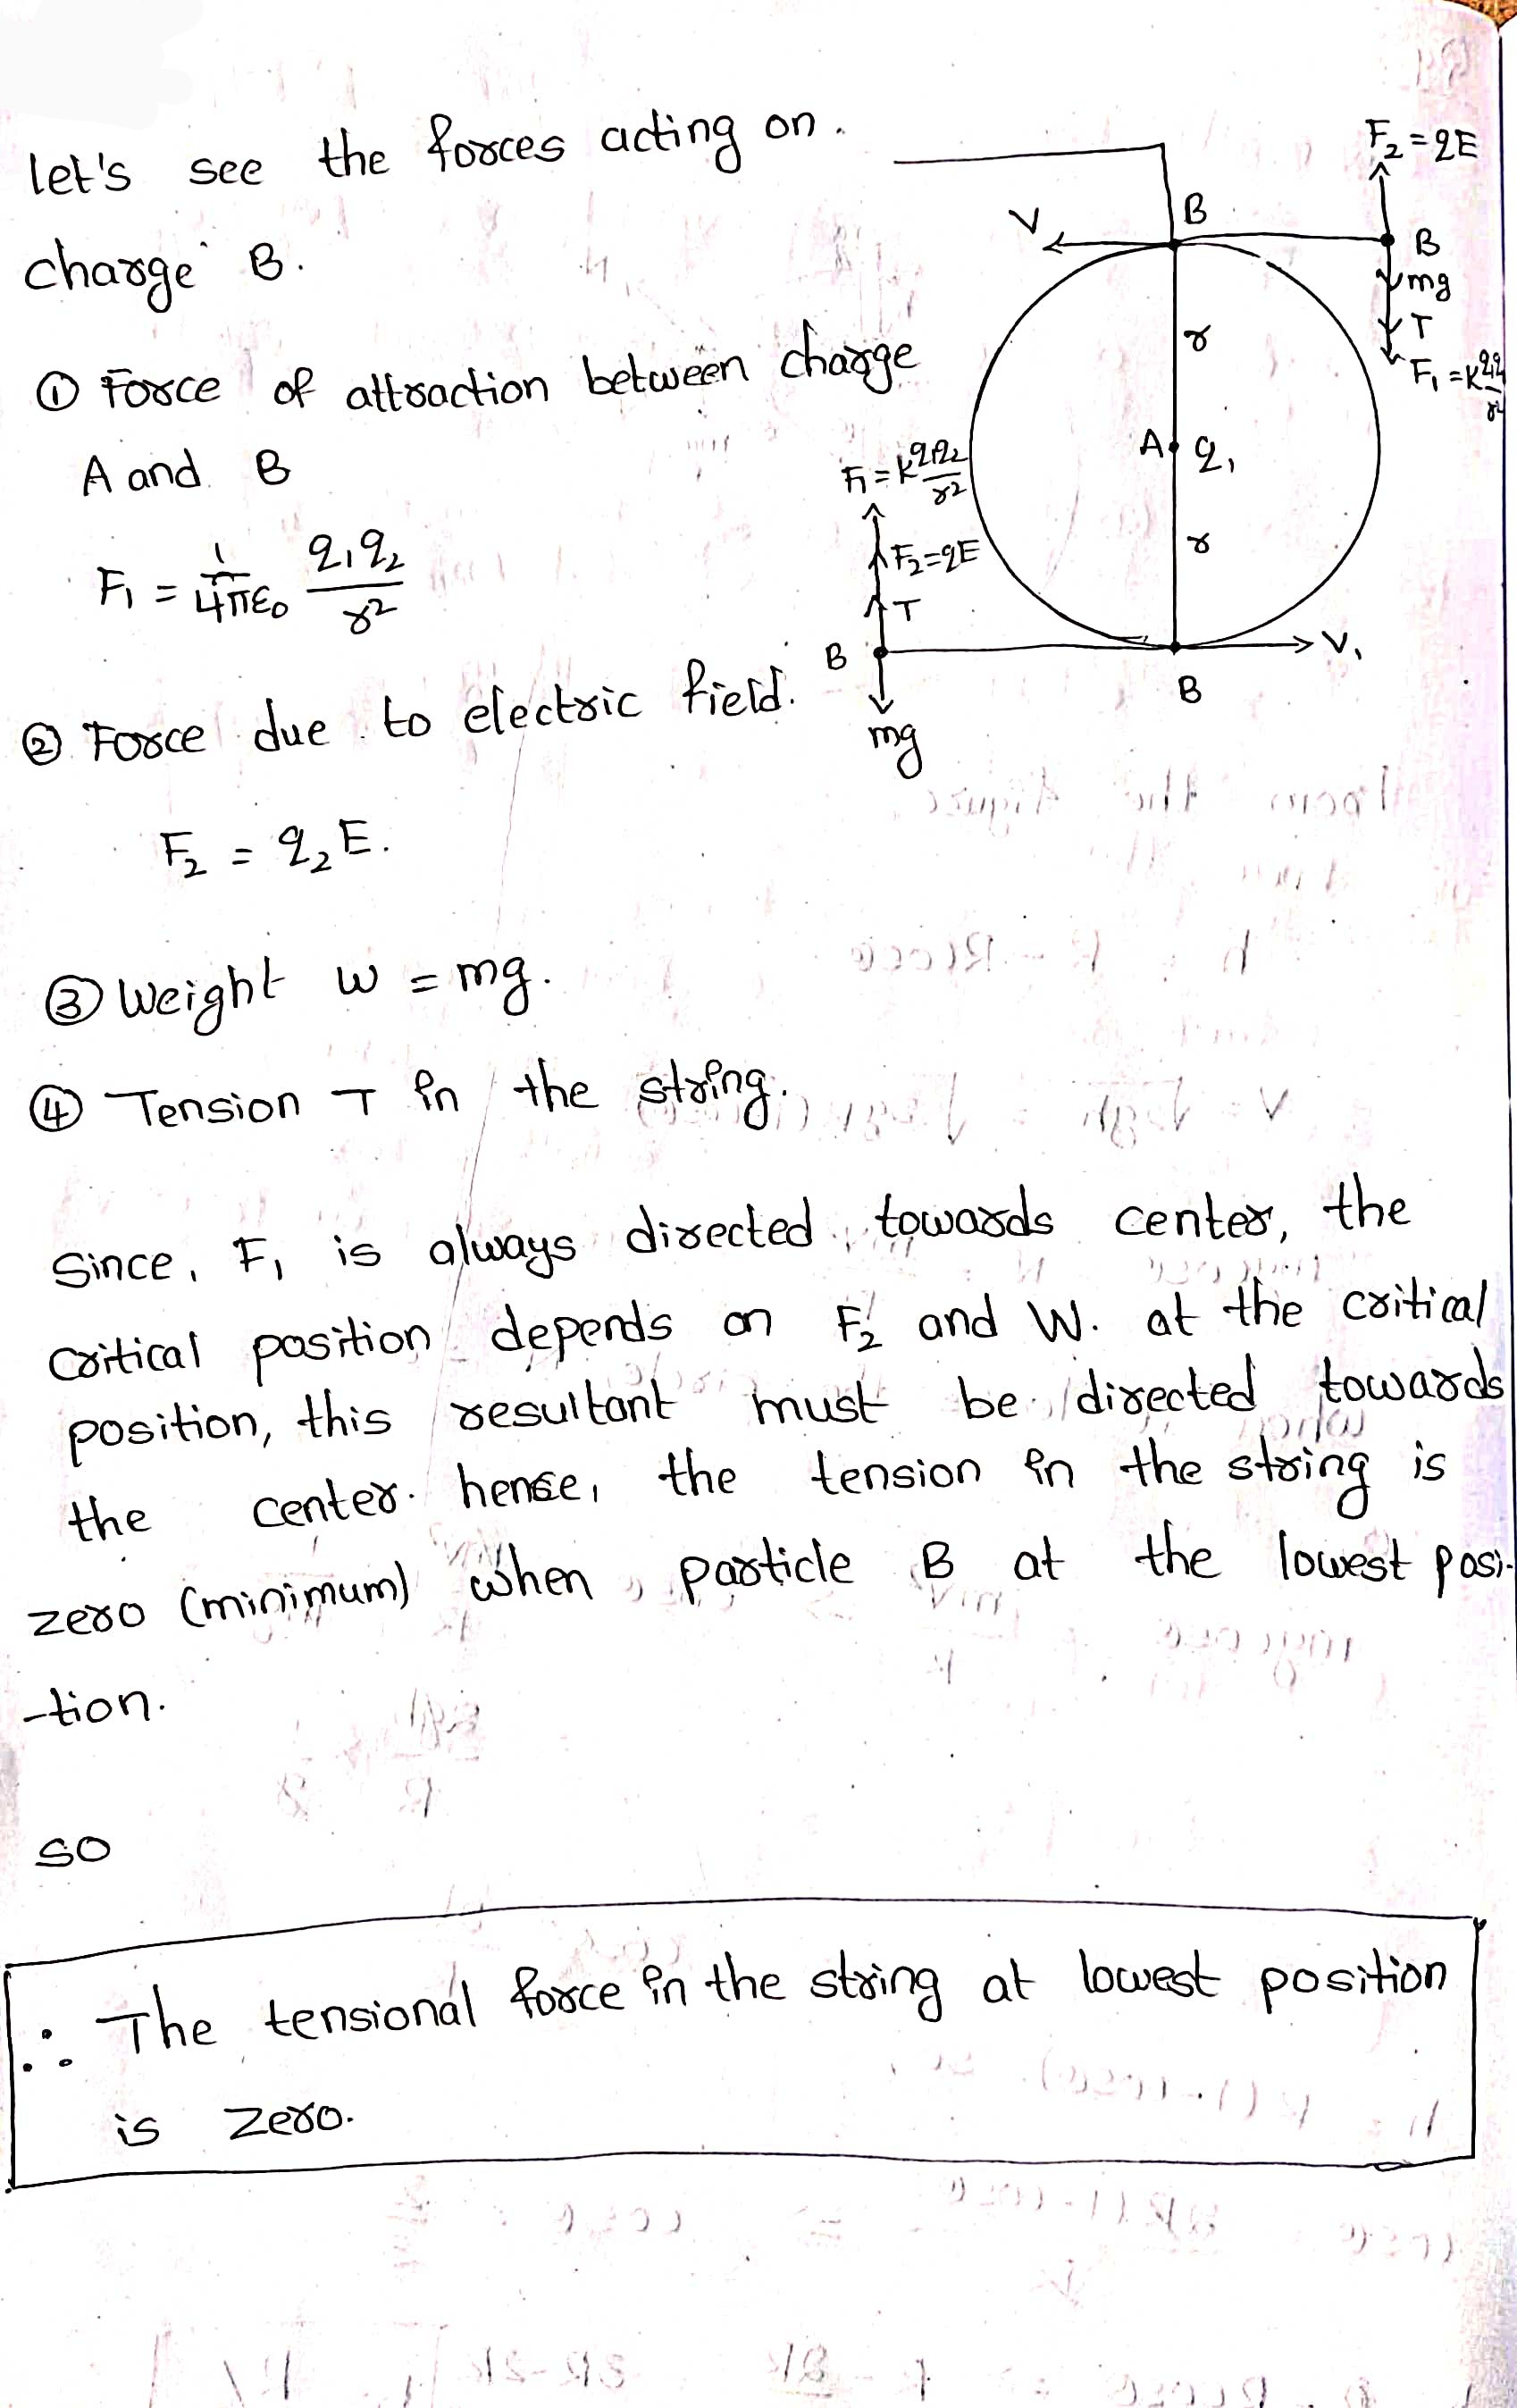 let's see the forces acting on.
charge B.
① Force of attraction between charge
A and B
F₁ = 1/4πε₀ q₁q₂/r²
② Force due to electric field.
F₂ = q₂E.
③ Weight w = mg.
④ Tension T in the string.
Since, F₁ is always directed towards center, the
critical position depends on F₂ and W. at the critical
position, this resultant must be directed towards
the center. hense, the tension in the string is
zero (minimum) when particle B at the lowest posi-
-tion.
so
∴ The tensional force in the string at lowest position
is zero.
F₂ = qE
B
V
B
mg
T
r
F₁ = K
A
q₁
F₁ = K q₁q₂/r²
F₂ = qE
r
T
B
V₁
B
mg